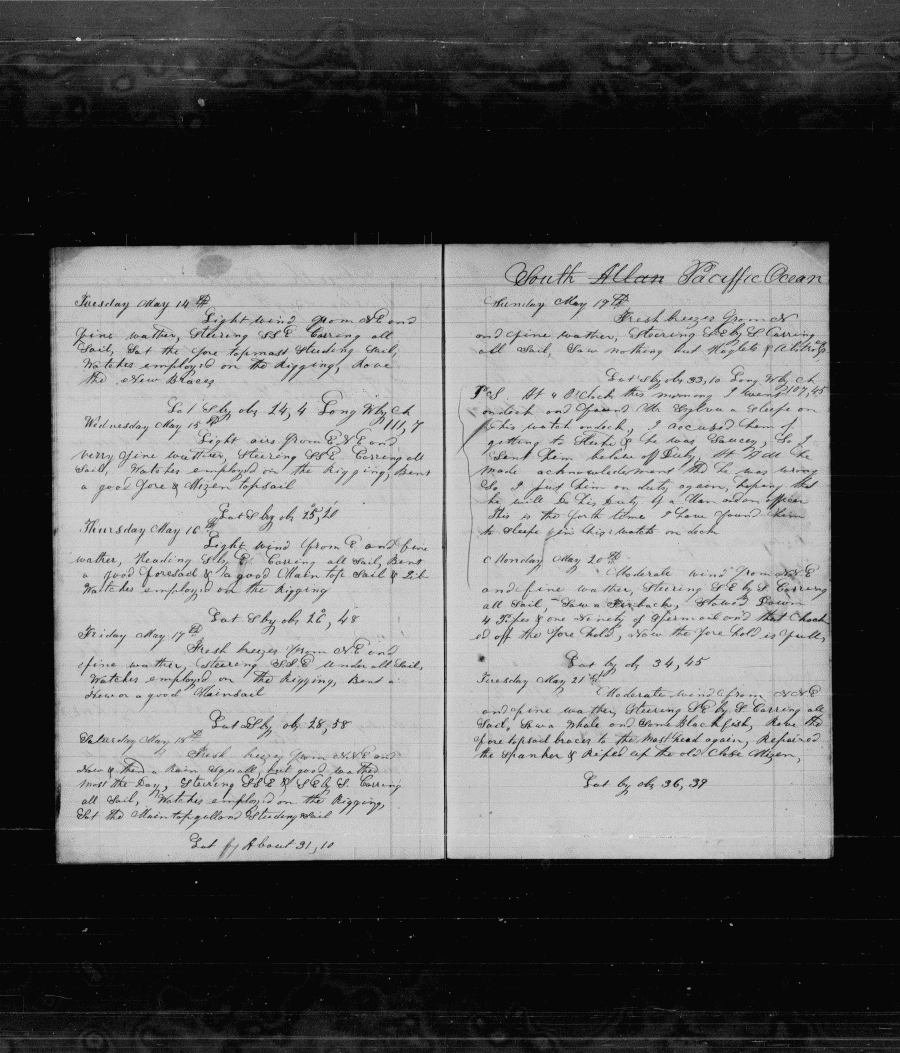 Tuesday May 14th
Light wind from NE and
fine wather, Steering SSE Carring all
Sail, Sat the fore topmast Studing Sail,
Watches employed on the Rigging, Rove
the New Braces
Lat S by obs 24,4 Long W by Ch
111,7
Wednesday May 15th
Light airs from E N E and
verry fine wather, Steering SSE Carring all
Sail, Watches employed on the Rigging, Bent
a good fore & Mizen topsail
Lat S by obs 25,20
Thursday May 16th
Light wind from E and fine
wather, Heading S by E Carring all Sail, Bent
a good foresail & a good Main top Sail & Jib
Watches employed on the Rigging
Lat S by obs 26,48
Friday May 17th
Fresh breezes from NE and
fine wather, Steering SSE under all Sail,
Watches employed on the Rigging, Bent a
New or a good Mainsail
Lat S by obs 28,58
Saturday May 18th
Fresh breezes from N.NE and
Now & then a Rain Squall but good wather
most the Day, Steering SSE & SE by S. Carring
all Sail, Watches employed on the Rigging,
Sat the Main topgalland Studing Sail
Lat by About 31,10
South Atlan Paciffic Ocean
Sunday May 19th
Fresh breezes from N
and fine wather, Steering SE by S Carring
all Sail, Saw nothing but Haglets &
Lat S by obs 33,10 Long W by Ch
107,45
PS At 4 Oclock this morning I went
ondeck and found Mr Sylvia a Sleepe on
his watch ondeck, I accused him of
getting to Sleepe & he was Saucey, So I
Sent him below off Duty, At 7 AM he
made acknowledement that he was wrong
So I put him on duty again, hoping that
he will Do his Duty of a Man and an officer
This is the forth time I have found him
to Sleepe in his watch on deck
Monday May 20th
Moderate wind from NNE
and fine wather, Steering SE by S Carring
all Sail, Saw a Finback, Stowed Down
4 Pipes & one Ninety of Spermoil and that Chock
ed off the fore hold, Now the fore hold is full,
Lat by obs 34,45
Tuesday May 21st
Moderate wind from NNE
and fine wather, Steering SE by S Carring all
Sail, Saw a Whale and Some Blackfish, Rove the
fore topsail braces to the Masthead again, Repaired
the Spanker & Riped up the old Close Mizen,
Lat by obs 36,39